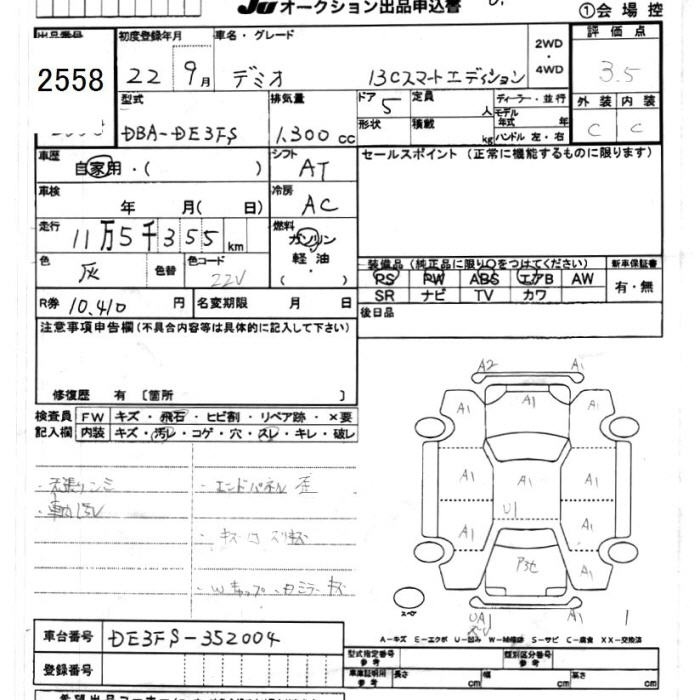 JU オークション出品申込書
①会場控
出品番号 2558
初度登録年月 22 9月
車名・グレード デミオ 13Cスマートエディション
2WD・4WD
評価点 3.5
型式 DBA-DE3FS
排気量 1.300 cc
ドア 5
定員 人
ディーラー・並行
形状
積載 kg
モデル年式 年
ハンドル 左・右
外装 内装
C C
車歴 自家用・( )
シフト AT
セールスポイント (正常に機能するものに限ります)
車検 年 月( 日)
冷房 AC
走行 11万5千355km
燃料 ガソリン 軽・油 ( )
色 灰 色替 色コード 22V
装備品 (純正品に限り○をつけてください)
新車保証書
RS PW ABS エアB AW
有・無
SR ナビ TV カワ
R券 10,410 円 名変期限 月 日
後日品
注意事項申告欄 (不具合内容等は具体的に記入して下さい)
修復歴 有 〔箇所 〕
検査員 FW キズ・飛石・ヒビ割・リペア跡・×要
記入欄 内装 キズ・汚レ・コゲ・穴・スレ・キレ・破レ
・エンドパネル 歪
A2 A1
A1 A1 A1
A1 A1 A1
U1
A1 A1
P3セ
A1 A1
スペ
UA1
A-キズ E-エクボ U-凹み W-補修跡 S-サビ C-腐食 XX-交換済
車台番号 DE3FS-352004
型式指定番号 参考
類別区分番号 参考
登録番号
車庫証明用 参考 長さ cm 幅 cm 高さ cm